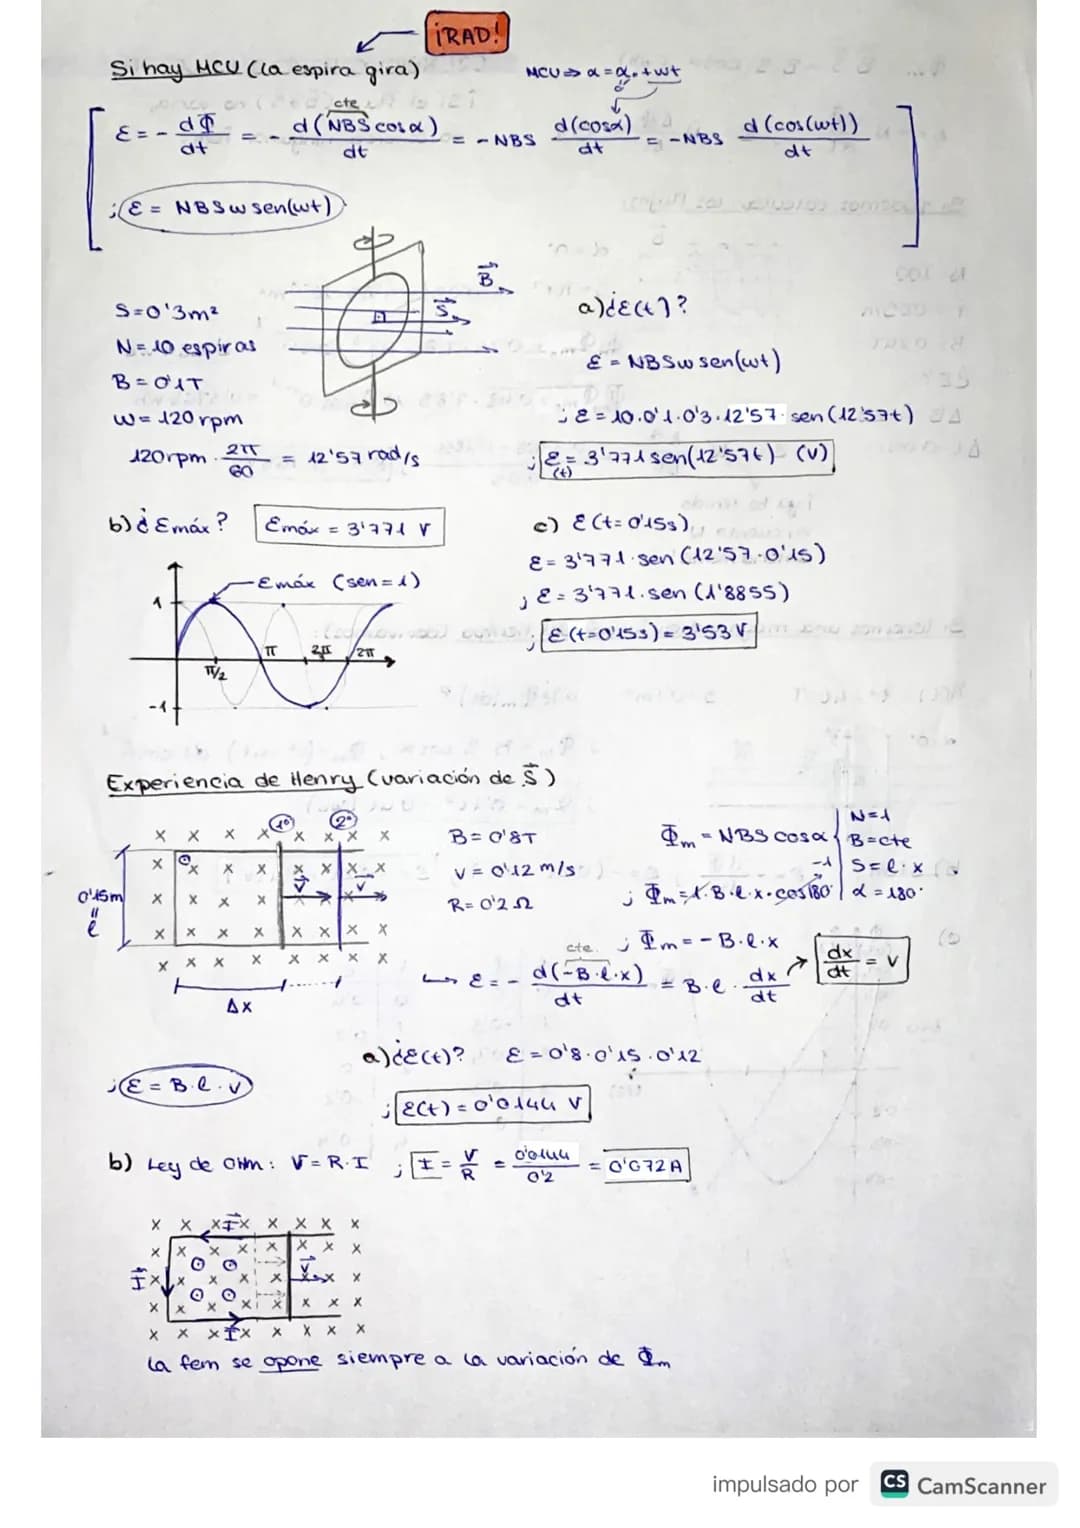 ¡RAD!
Si hay MCU (la espira gira)
MCU ⇒ α = α₀ + wt
cte
ε = - dΦ/dt = - d(NBS cosα)/dt = - NBS d(cosα)/dt = - NBS d(cos(wt))/dt
; ε = NBSw sen(wt)
B⃗
S⃗
S = 0'3m²
N = 10 espiras
B = 0'1T
w = 120 rpm
120rpm · 2π/60 = 12'57 rad/s
a) ¿ε(t)?
ε = NBSw sen(wt)
; ε = 10·0'1·0'3·12'57· sen(12'57t)
; ε(t) = 3'771 sen(12'57t) (V)
b) ¿εmáx? εmáx = 3'771 V
εmáx (sen = 1)
1
π/2
π
2π
-1
c) ε(t=0'15s)
ε = 3'771·sen(12'57·0'15)
; ε = 3'771·sen(1'8855)
; ε(t=0'15s) = 3'53 V
Experiencia de Henry (variación de S⃗)
1º 2º
x x x x x x x x
0'15m
"
ℓ
v⃗ v⃗
Δx
B = 0'8T
v = 0'12 m/s
R = 0'2 Ω
Φm = NBS cosα
N = 1
B = cte
S = ℓ·x
α = 180·
-1
; Φm = 1·B·ℓ·x·cos180
; Φm = - B·ℓ·x
cte.
ε = - d(-B·ℓ·x)/dt = B·ℓ · dx/dt
dx/dt = v
; ε = B·ℓ·v
a) ¿ε(t)? ε = 0'8·0'15·0'12
; ε(t) = 0'0144 V
b) Ley de Ohm: V = R·I ; I = V/R = 0'0144/0'2 = 0'072A
x x x I⃗ x x x x x
I⃗
v⃗
x x x I⃗ x x x x x
La fem se opone siempre a la variación de Φm
impulsado por CS CamScanner